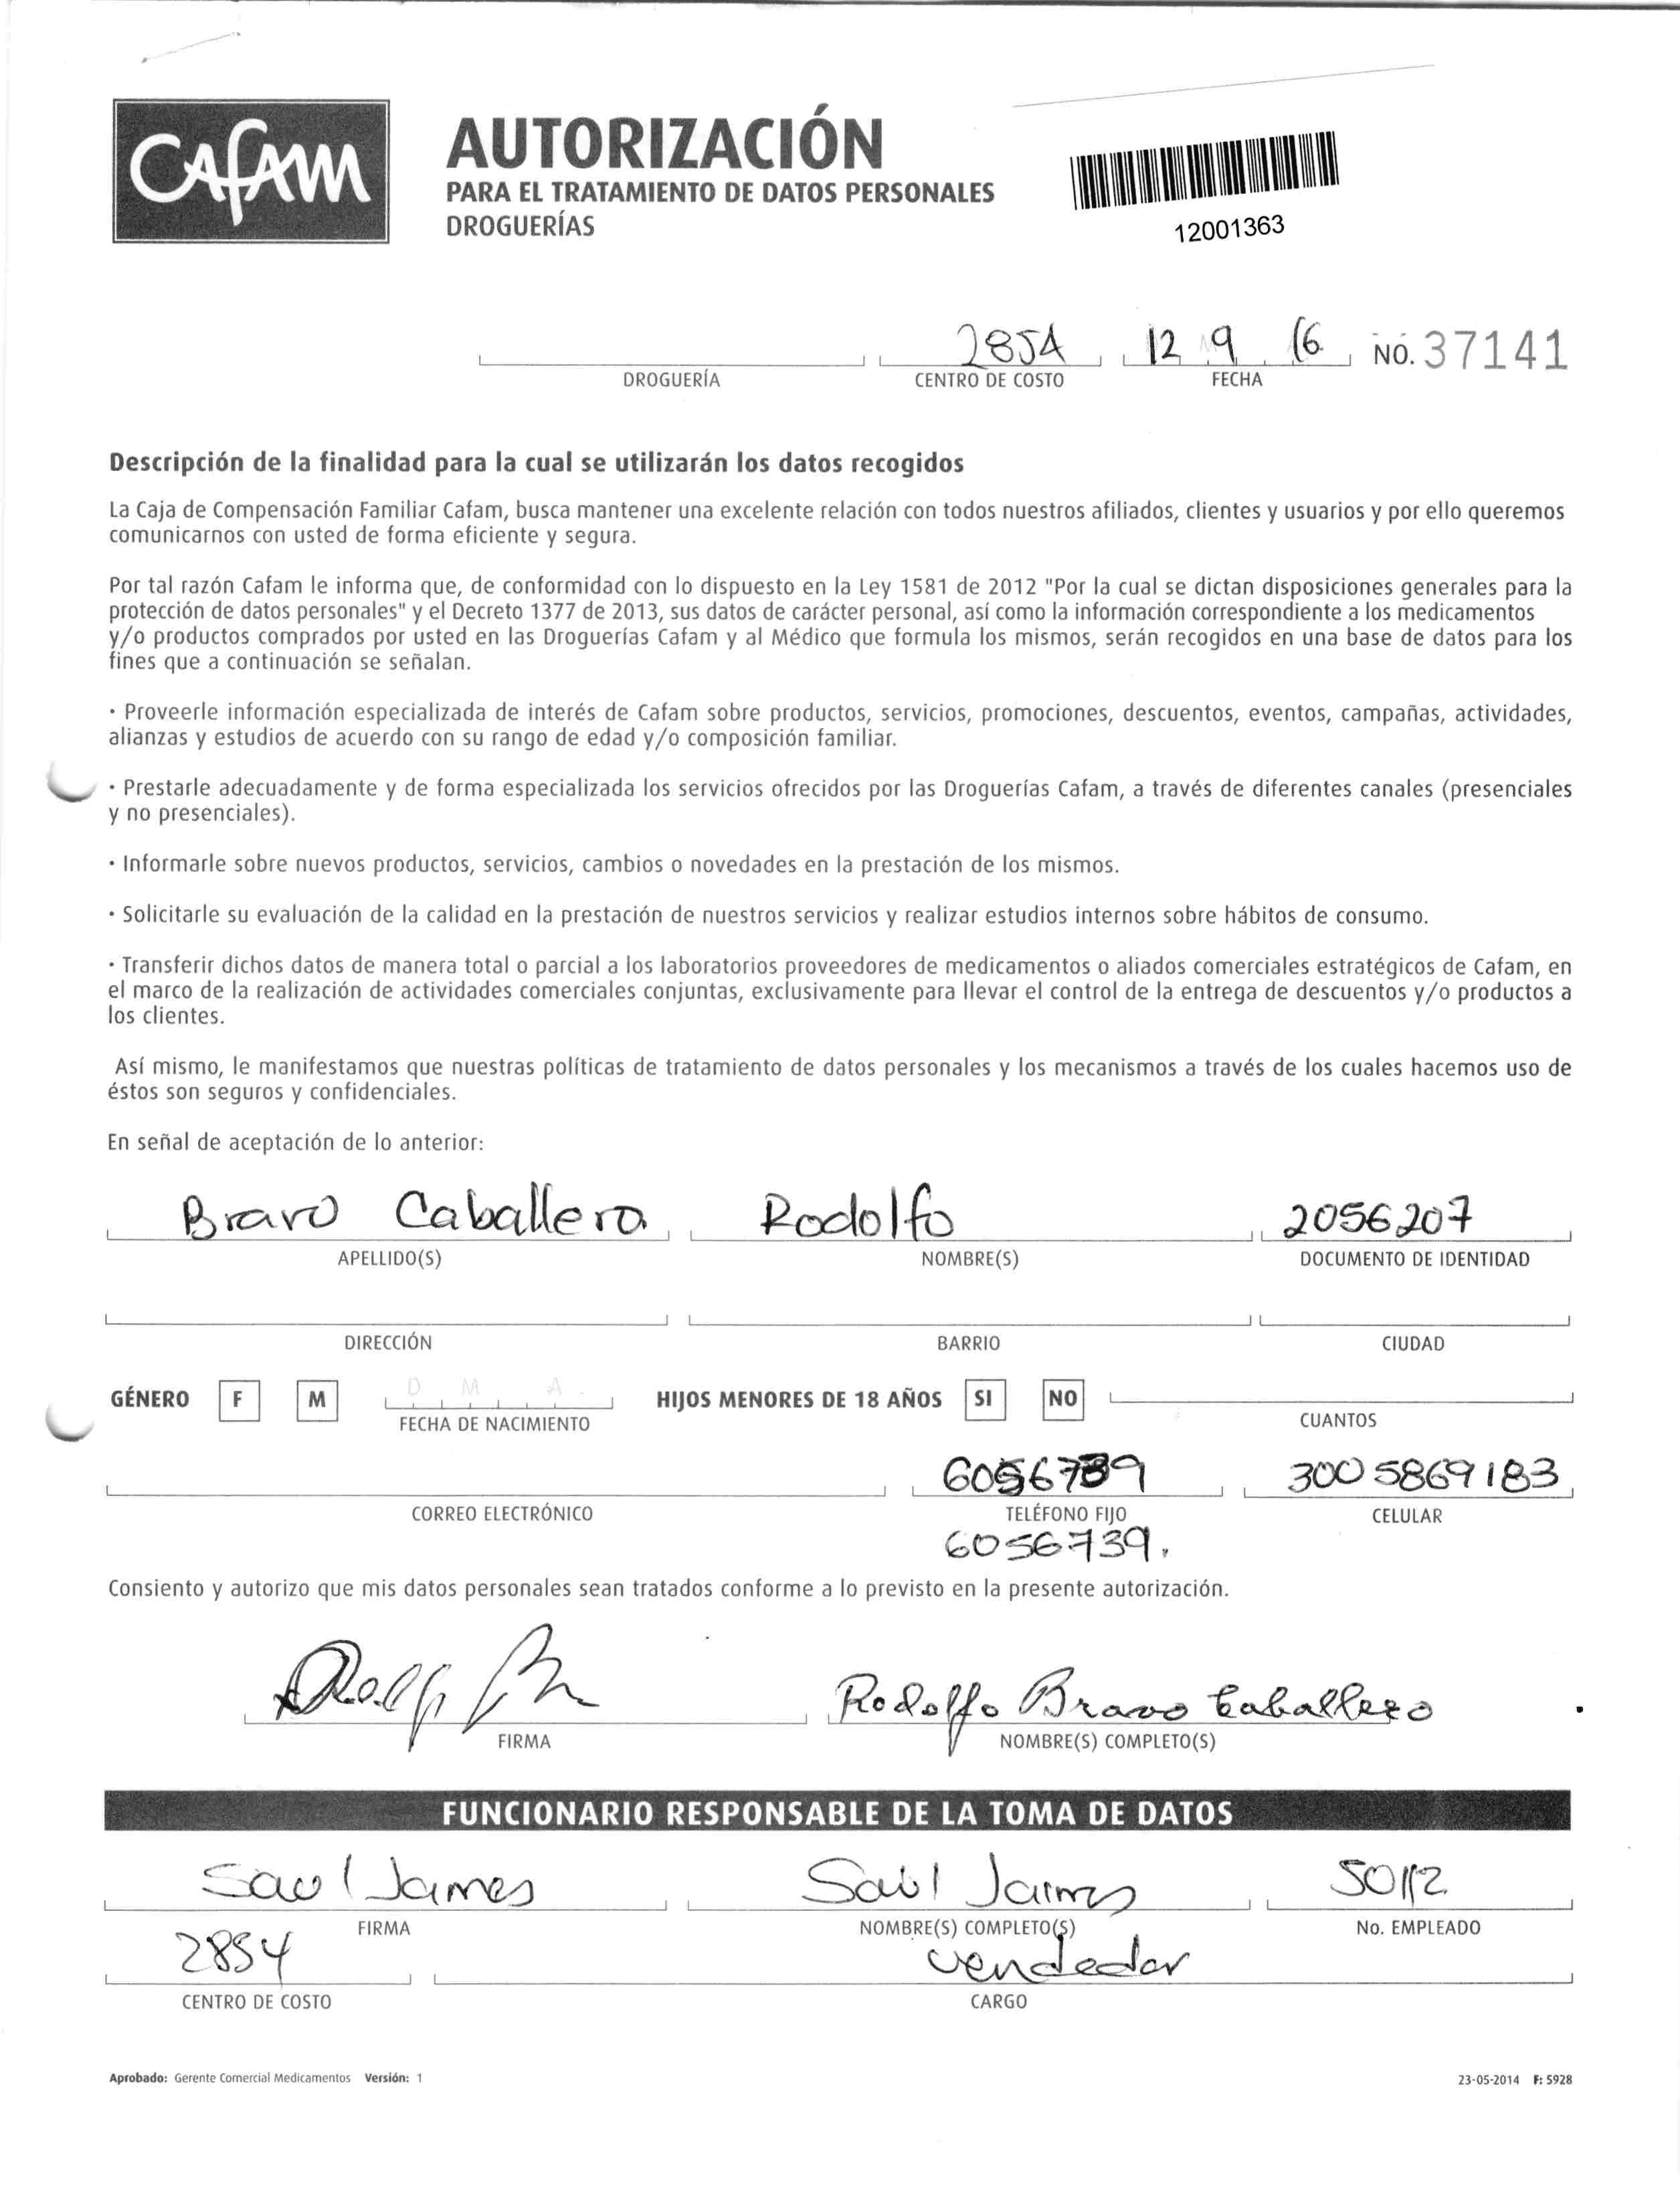 CAFAM
AUTORIZACIÓN
PARA EL TRATAMIENTO DE DATOS PERSONALES
DROGUERÍAS
12001363
2854 12 9 16 NO. 37141
DROGUERÍA CENTRO DE COSTO FECHA
Descripción de la finalidad para la cual se utilizarán los datos recogidos
La Caja de Compensación Familiar Cafam, busca mantener una excelente relación con todos nuestros afiliados, clientes y usuarios y por ello queremos
comunicarnos con usted de forma eficiente y segura.
Por tal razón Cafam le informa que, de conformidad con lo dispuesto en la Ley 1581 de 2012 "Por la cual se dictan disposiciones generales para la
protección de datos personales" y el Decreto 1377 de 2013, sus datos de carácter personal, así como la información correspondiente a los medicamentos
y/o productos comprados por usted en las Droguerías Cafam y al Médico que formula los mismos, serán recogidos en una base de datos para los
fines que a continuación se señalan.
· Proveerle información especializada de interés de Cafam sobre productos, servicios, promociones, descuentos, eventos, campañas, actividades,
alianzas y estudios de acuerdo con su rango de edad y/o composición familiar.
· Prestarle adecuadamente y de forma especializada los servicios ofrecidos por las Droguerías Cafam, a través de diferentes canales (presenciales
y no presenciales).
· Informarle sobre nuevos productos, servicios, cambios o novedades en la prestación de los mismos.
· Solicitarle su evaluación de la calidad en la prestación de nuestros servicios y realizar estudios internos sobre hábitos de consumo.
· Transferir dichos datos de manera total o parcial a los laboratorios proveedores de medicamentos o aliados comerciales estratégicos de Cafam, en
el marco de la realización de actividades comerciales conjuntas, exclusivamente para llevar el control de la entrega de descuentos y/o productos a
los clientes.
Así mismo, le manifestamos que nuestras políticas de tratamiento de datos personales y los mecanismos a través de los cuales hacemos uso de
éstos son seguros y confidenciales.
En señal de aceptación de lo anterior:
Bravo Caballero Rodolfo 2056207
APELLIDO(S) NOMBRE(S) DOCUMENTO DE IDENTIDAD
DIRECCIÓN BARRIO CIUDAD
GÉNERO F M D M A HIJOS MENORES DE 18 AÑOS SI NO
FECHA DE NACIMIENTO CUANTOS
6056739 300 5869183
CORREO ELECTRÓNICO TELÉFONO FIJO CELULAR
6056739.
Consiento y autorizo que mis datos personales sean tratados conforme a lo previsto en la presente autorización.
Rodolfo Bravo Caballero
FIRMA NOMBRE(S) COMPLETO(S)
FUNCIONARIO RESPONSABLE DE LA TOMA DE DATOS
Saul Jaimes Saul Jaimes 50112
FIRMA NOMBRE(S) COMPLETO(S) No. EMPLEADO
2854 vendedor
CENTRO DE COSTO CARGO
Aprobado: Gerente Comercial Medicamentos Versión: 1 23-05-2014 F: 5928